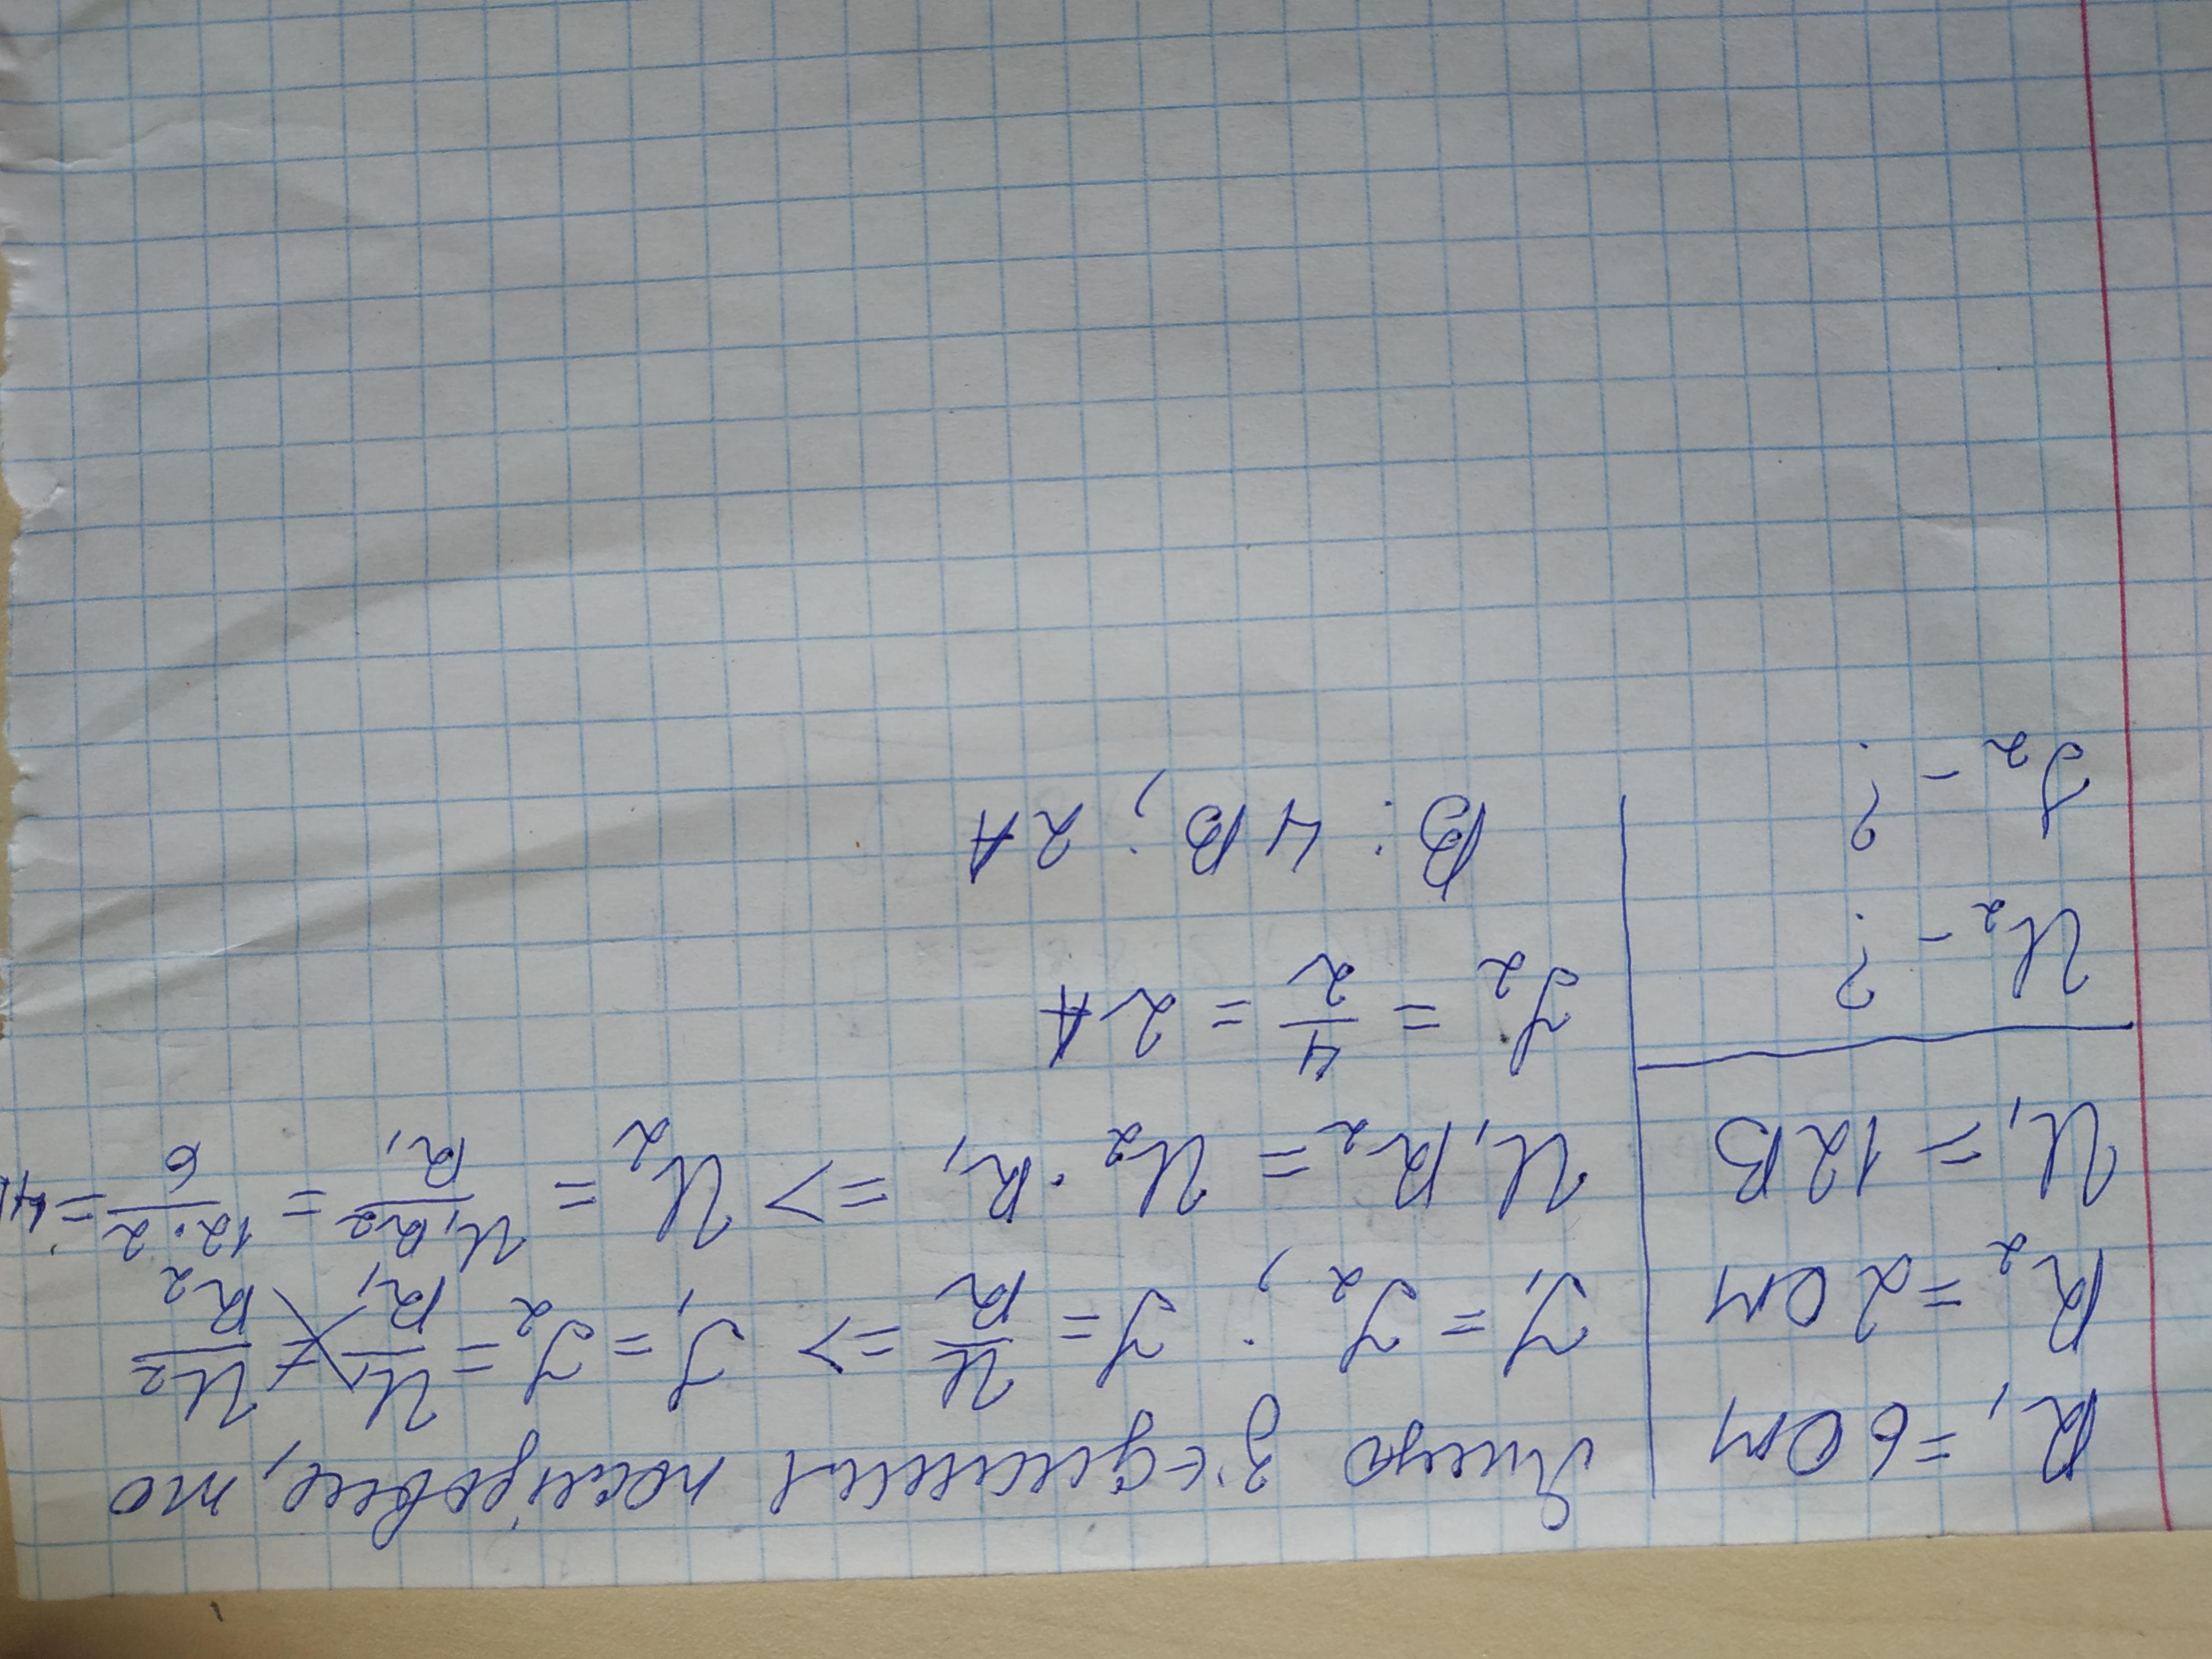 R₁ = 6 Ом
R₂ = 2 Ом
U₁ = 12 В
U₂ - ?
I₂ - ?
Якщо з'єднання послідовне, то
I₁ = I₂; I = U/R => I₁ = I₂ = U₁/R₁ = U₂/R₂
U₁R₂ = U₂·R₁ => U₂ = U₁R₂/R₁ = 12·2/6 = 4
I₂ = 4/2 = 2 А
В: 4 В; 2 А